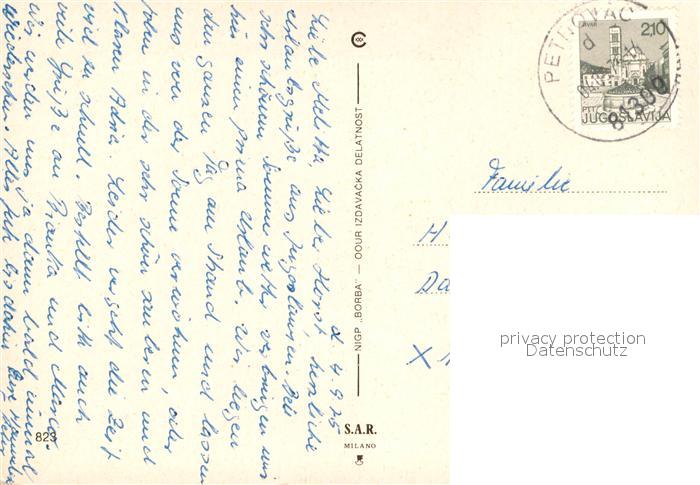 d. 4.9.75
Liebe Melitta, Lieber Horst, herzliche
Urlaubsgrüße aus Jugoslawien. Bei
sehr schönem Sonnenwetter verbringen wir
hier einen prima Urlaub. Wir liegen
den ganzen Tag am Strand und lassen
uns von der Sonne verwöhnen, oder
in der sehr schön sauberen und
klaren Adria. Leider vergeht die Zeit
viel zu schnell. Bestellt bitte auch
viele Grüße an Bianka und
Wir werden uns ja dann bald einmal
wiedersehen. Alles Gute bis dahin Eure
823
NIGP „BORBA" — OOUR IZDAVAČKA DELATNOST
S.A.R.
MILANO
PETROVAC
81300
HVAR
2,10
PTT
JUGOSLAVIJA
Familie
H
Da
X 1
privacy protection
Datenschutz